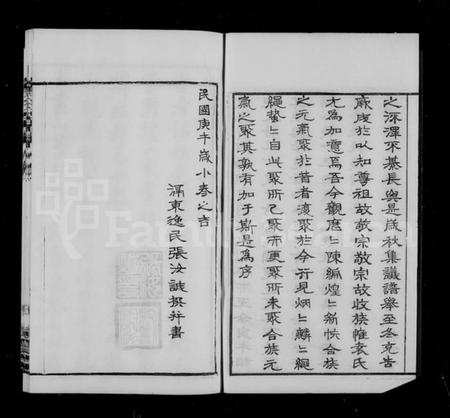 之深澤不綦長與是歲秋集議譜舉至冬克告
厥成於以知尊祖故敬宗敬宗故收族惟袁氏
尤為加意焉吾今觀歷歷陳編煌煌新帙合族
之元氣聚於昔者復聚於今行見炳炳麟麟繩
繩蟄蟄自此聚所已聚而更聚所未聚合族元
氣之聚其孰有加于斯是為序
民國庚午歲小春之吉
滆東逸民張汝誠撰并書